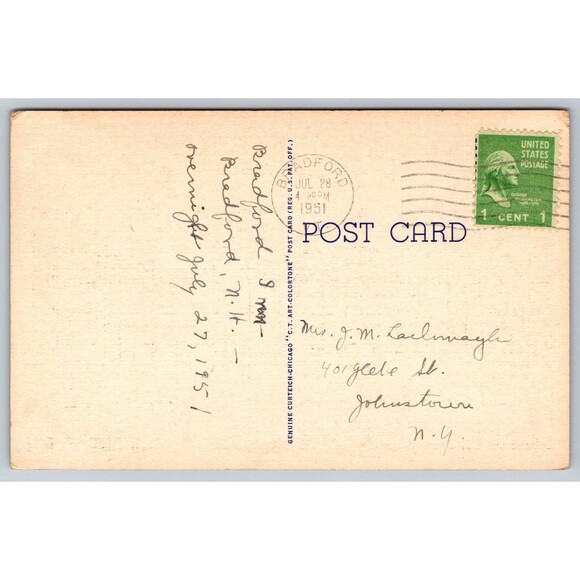 Bradford Inn -
Bradford, N.H. -
overnight July 27, 1951
GENUINE CURTEICH-CHICAGO "C.T. ART-COLORTONE" POST CARD (REG. U.S. PAT. OFF.)
BRADFORD
JUL 28
4 PM
1951
UNITED
STATES
POSTAGE
1 CENT 1
POST CARD
Mrs. J. M.
401 Glebe St.
Johnstown
N.Y.